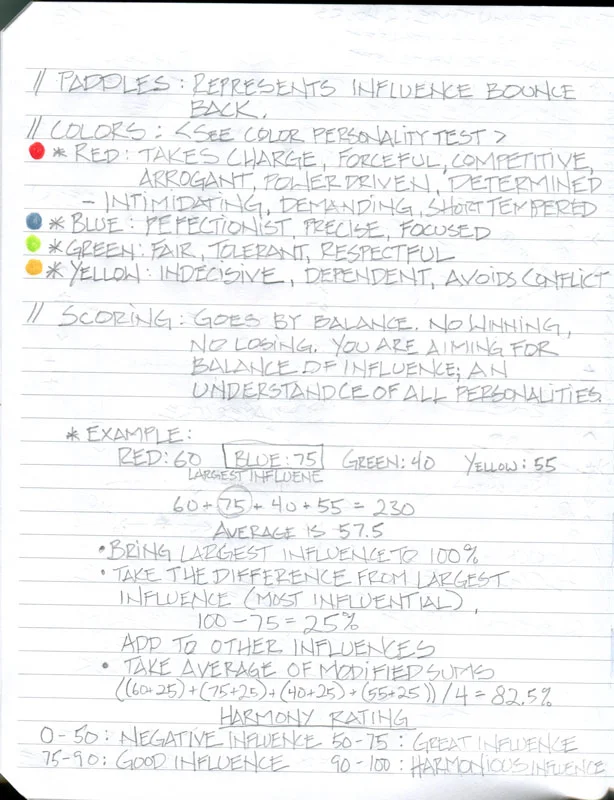 // PADDLES : REPRESENTS INFLUENCE BOUNCE
BACK.
// COLORS : <SEE COLOR PERSONALITY TEST>
* RED: TAKES CHARGE, FORCEFUL, COMPETITIVE,
ARROGANT, POWER DRIVEN, DETERMINED
- INTIMIDATING, DEMANDING, SHORT TEMPERED
* BLUE: PEFECTIONIST, PRECISE, FOCUSED
* GREEN: FAIR, TOLERANT, RESPECTFUL
* YELLOW: INDECISIVE, DEPENDENT, AVOIDS CONFLICT
// SCORING : GOES BY BALANCE. NO WINNING,
NO LOSING. YOU ARE AIMING FOR
BALANCE OF INFLUENCE; AN
UNDERSTANDCE OF ALL PERSONALITIES.
* EXAMPLE:
RED: 60 BLUE: 75 GREEN: 40 YELLOW: 55
LARGEST INFLUENE
60 + 75 + 40 + 55 = 230
AVERAGE IS 57.5
• BRING LARGEST INFLUENCE TO 100%
• TAKE THE DIFFERENCE FROM LARGEST
INFLUENCE (MOST INFLUENTIAL),
100 - 75 = 25%
ADD TO OTHER INFLUENCES
• TAKE AVERAGE OF MODIFIED SUMS
((60+25) + (75+25) + (40+25) + (55+25)) / 4 = 82.5%
HARMONY RATING
0-50: NEGATIVE INFLUENCE 50-75: GREAT INFLUENCE
75-90: GOOD INFLUENCE 90-100: HARMONIOUS INFLUENCE